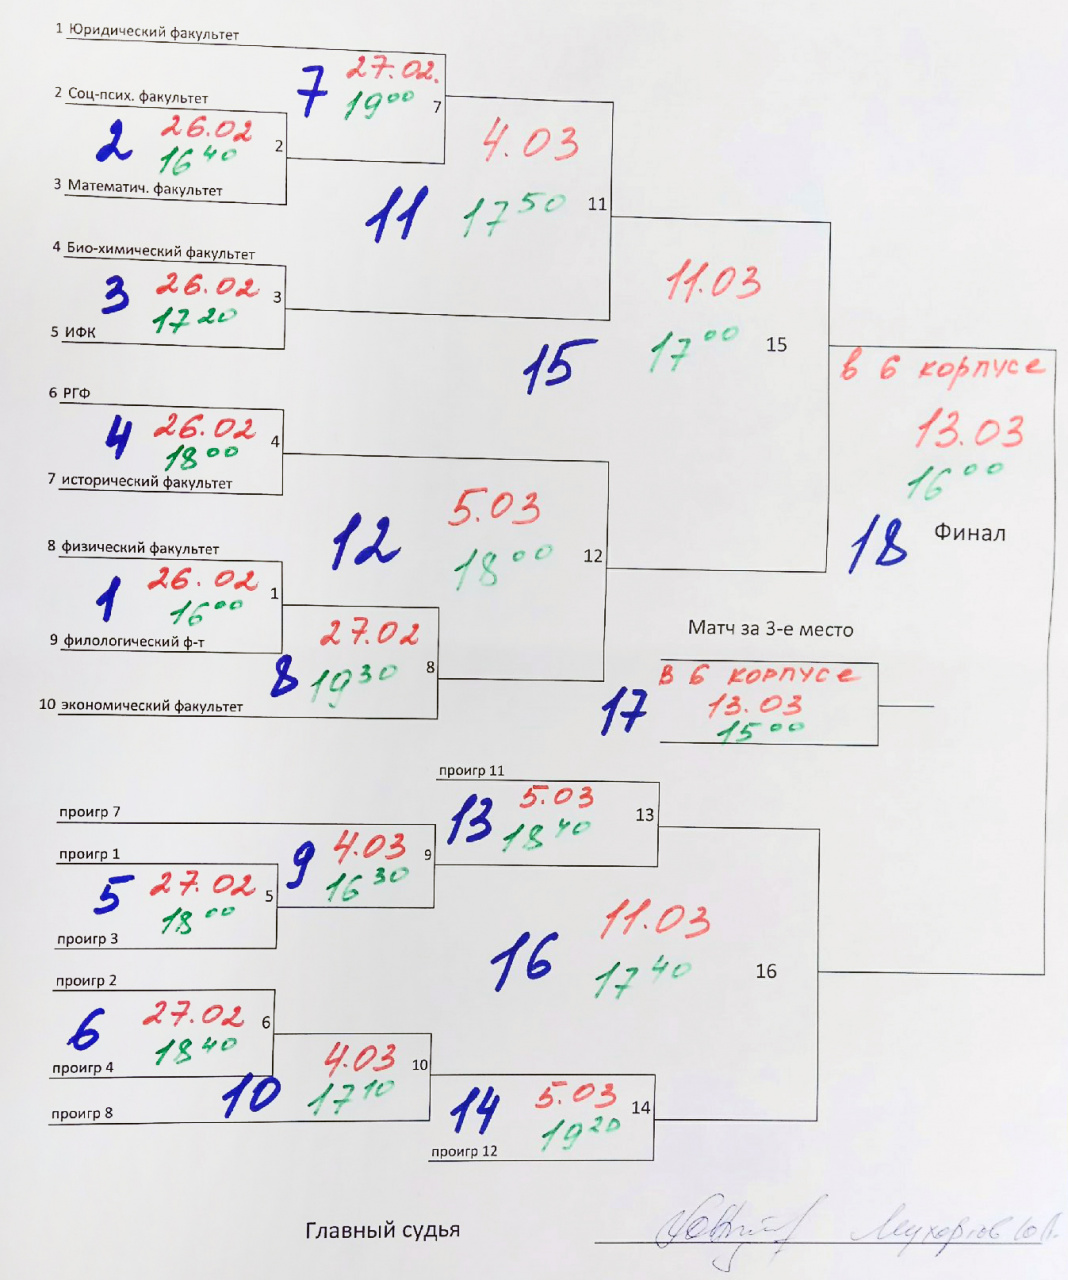 1 Юридический факультет
7 27.02.
19⁰⁰ 7
2 Соц-псих. факультет
2 26.02 2
16⁴⁰
3 Математич. факультет
4.03
11 17⁵⁰ 11
4 Био-химический факультет
3 26.02 3
17²⁰
5 ИФК
11.03
15 17⁰⁰ 15
6 РГФ
4 26.02 4
18⁰⁰
7 исторический факультет
в 6 корпусе
13.03
16⁰⁰
18 Финал
5.03
12 18⁰⁰ 12
8 физический факультет
1 26.02 1
16⁰⁰
9 филологический ф-т
27.02
8 19³⁰ 8
10 экономический факультет
Матч за 3-е место
в 6 корпусе
17 13.03
15⁰⁰
проигр 11
13 5.03 13
18⁴⁰
проигр 7
9 4.03 9
16³⁰
проигр 1
5 27.02 5
18⁰⁰
проигр 3
11.03
16 17⁴⁰ 16
проигр 2
6 27.02 6
18⁴⁰
проигр 4
4.03 10
10 17¹⁰
проигр 8
14 5.03 14
19²⁰
проигр 12
Главный судья